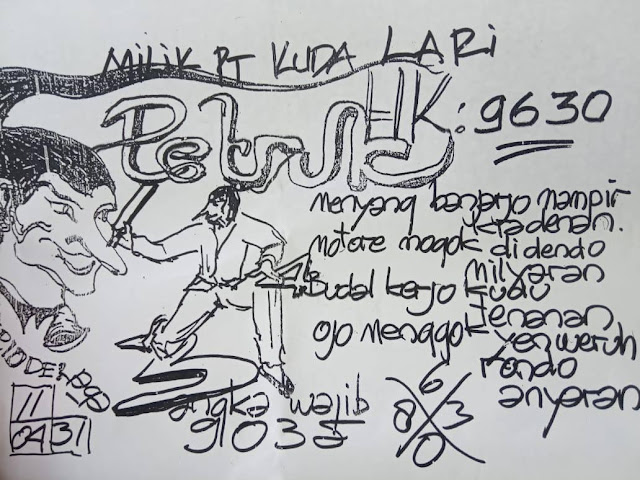 MILIK PT KUDA LARI
Petruk
HK: 9630
menyang banjarjo mampir
kradenan.
motore mogok di dendo
milyaran
budal kerjo kudu
tenanan
ojo menggok yen weruh
rondo
anyaran
11
04 31
angka wajib
9035
6
8 3
0